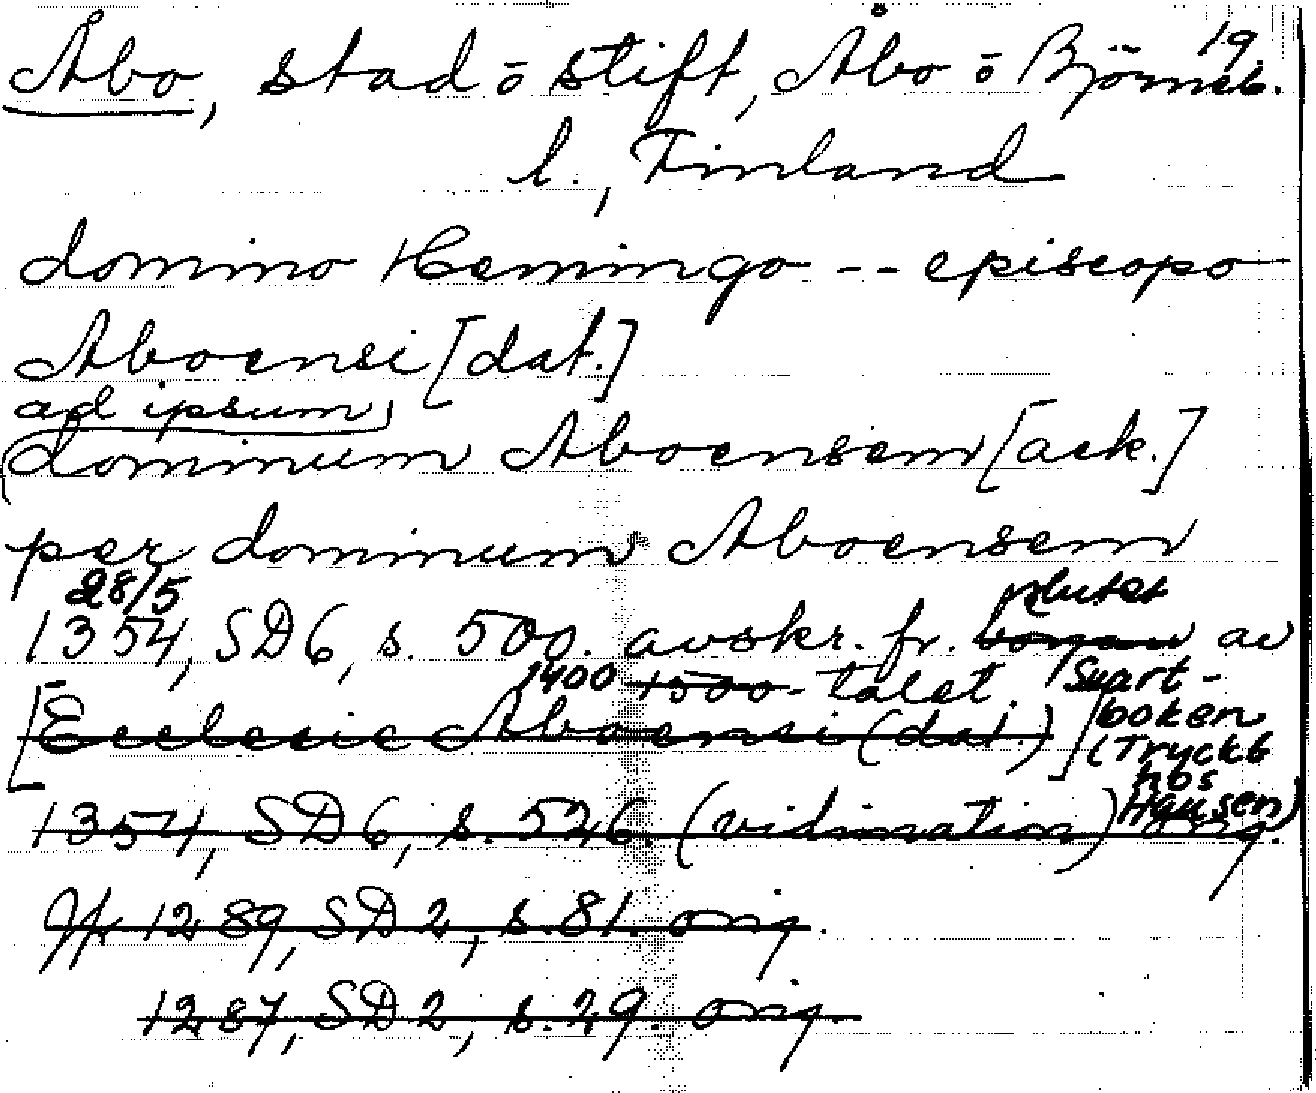 19
Åbo, stad o stift, Åbo o Björneb.
l., Finland
domino Hemingo -- episcopo
Aboensi [dat.]
ad ipsum
dominum Aboensem [ack.]
per dominum Aboensem
28/5 slutet
1354, SD6, s. 500. avskr. fr. början av
1400 1500-talet. Svart-
[Ecclesie Aboensi (dat.)] boken
(Tryckt
hos
Hausen)
1354, SD6, s. 526. (vidimation) orig.
Jfr 1289, SD2, s. 81. orig.
1287, SD2, s. 29. orig.